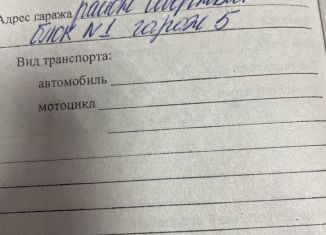 Адрес гаража район
блок №1 гараж 5
Вид транспорта:
автомобиль
мотоцикл